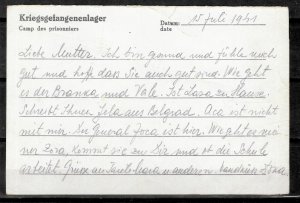 Kriegsgefangenenlager
Camp des prisonniers
Datum:
date
15 Juli 1941
Liebe Mutter. Ich bin gesund und fühle mich
gut und hoffe das Sie auch gut sind. Wie geht
es der Branka und Vale. Ist Lasa zu Hause.
Schreibt Ihnen Lela aus Belgrad. Aca ist nicht
mit mir. Sie General Joca ist hier. Wie geht es mei
ner Zora, kommt sie zu Dir und ist die Schule
arbeitet. Grüsse an Tante u anderen.